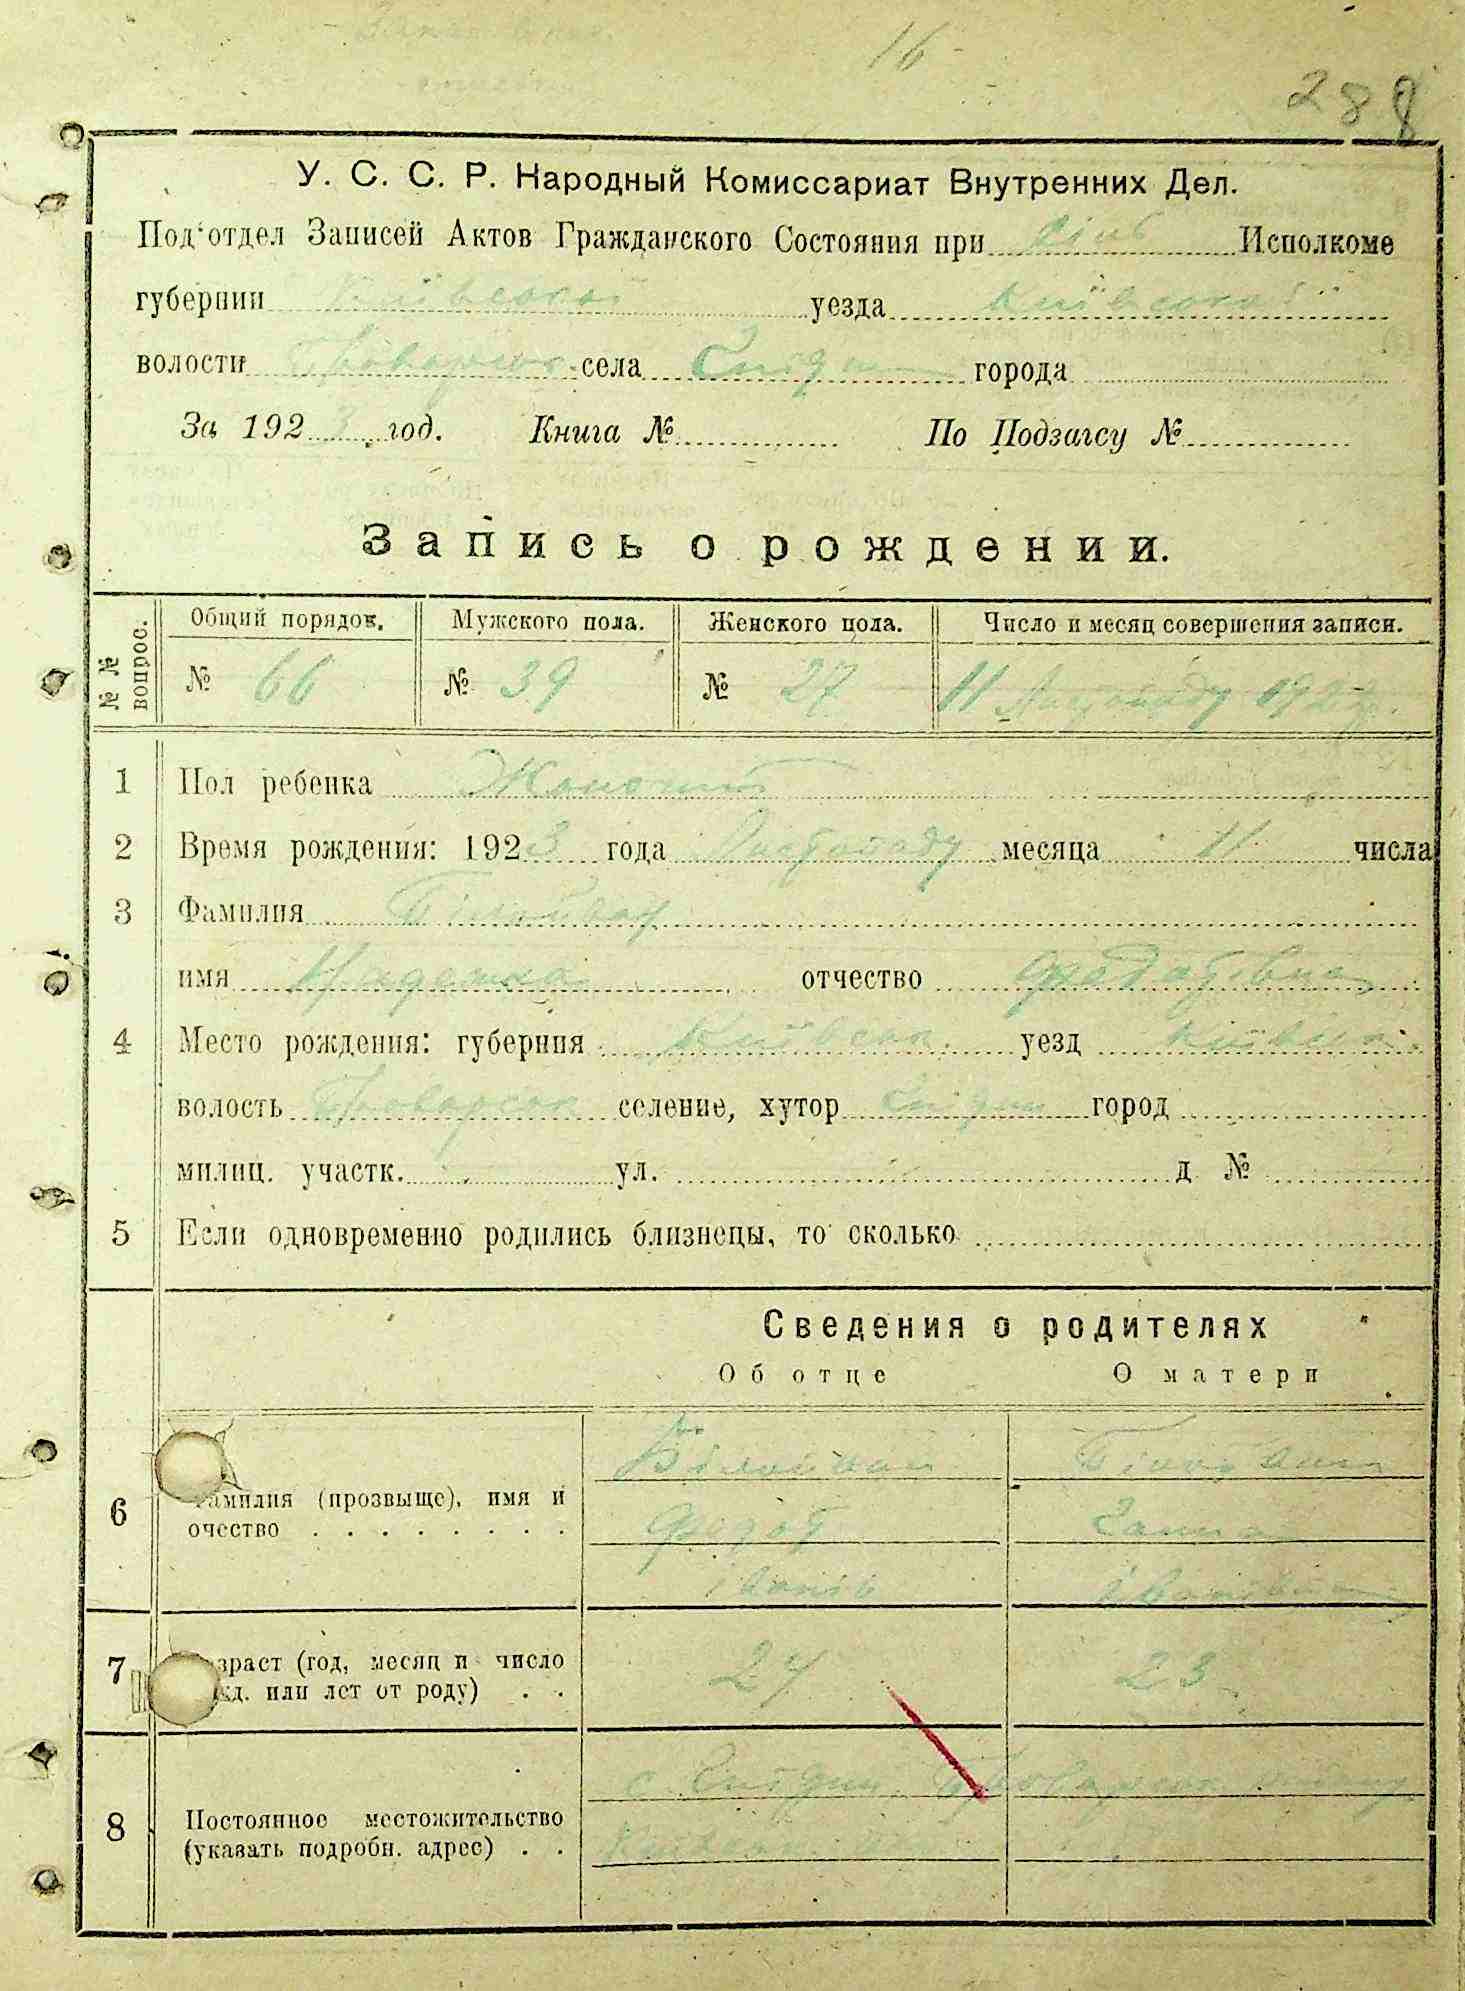 16
288
У. С. С. Р. Народный Комиссариат Внутренних Дел.
Под‘отдел Записей Актов Гражданского Состояния при Исполкоме
губернии Київської уезда Київської
волости Броварськ. села города
За 1923 год. Книга № По Подзагсу №
Запись о рождении.
№ № вопрос.
Общий порядок. Мужского пола. Женского пола. Число и месяц совершения записи.
№ 66 № 39 № 27 11 Листопаду 1923
1 Пол ребенка Жоночий
2 Время рождения: 1923 года Листопаду месяца 11 числа
3 Фамилия
имя Надежда отчество Федотівна
4 Место рождения: губерния Київськ. уезд Київськ.
волость Броварськ селение, хутор город
милиц. участк. ул. д №
5 Если одновременно родились близнецы, то сколько
Сведения о родителях
Об отце О матери
6 Фамилия (прозвыще), имя и очество
Федот Ганна
Іванів Іванівна
7 Возраст (год, месяц и число рожд. или лет от роду) 24 23
8 Постоянное местожительство (указать подробн. адрес)
с. Броварськ